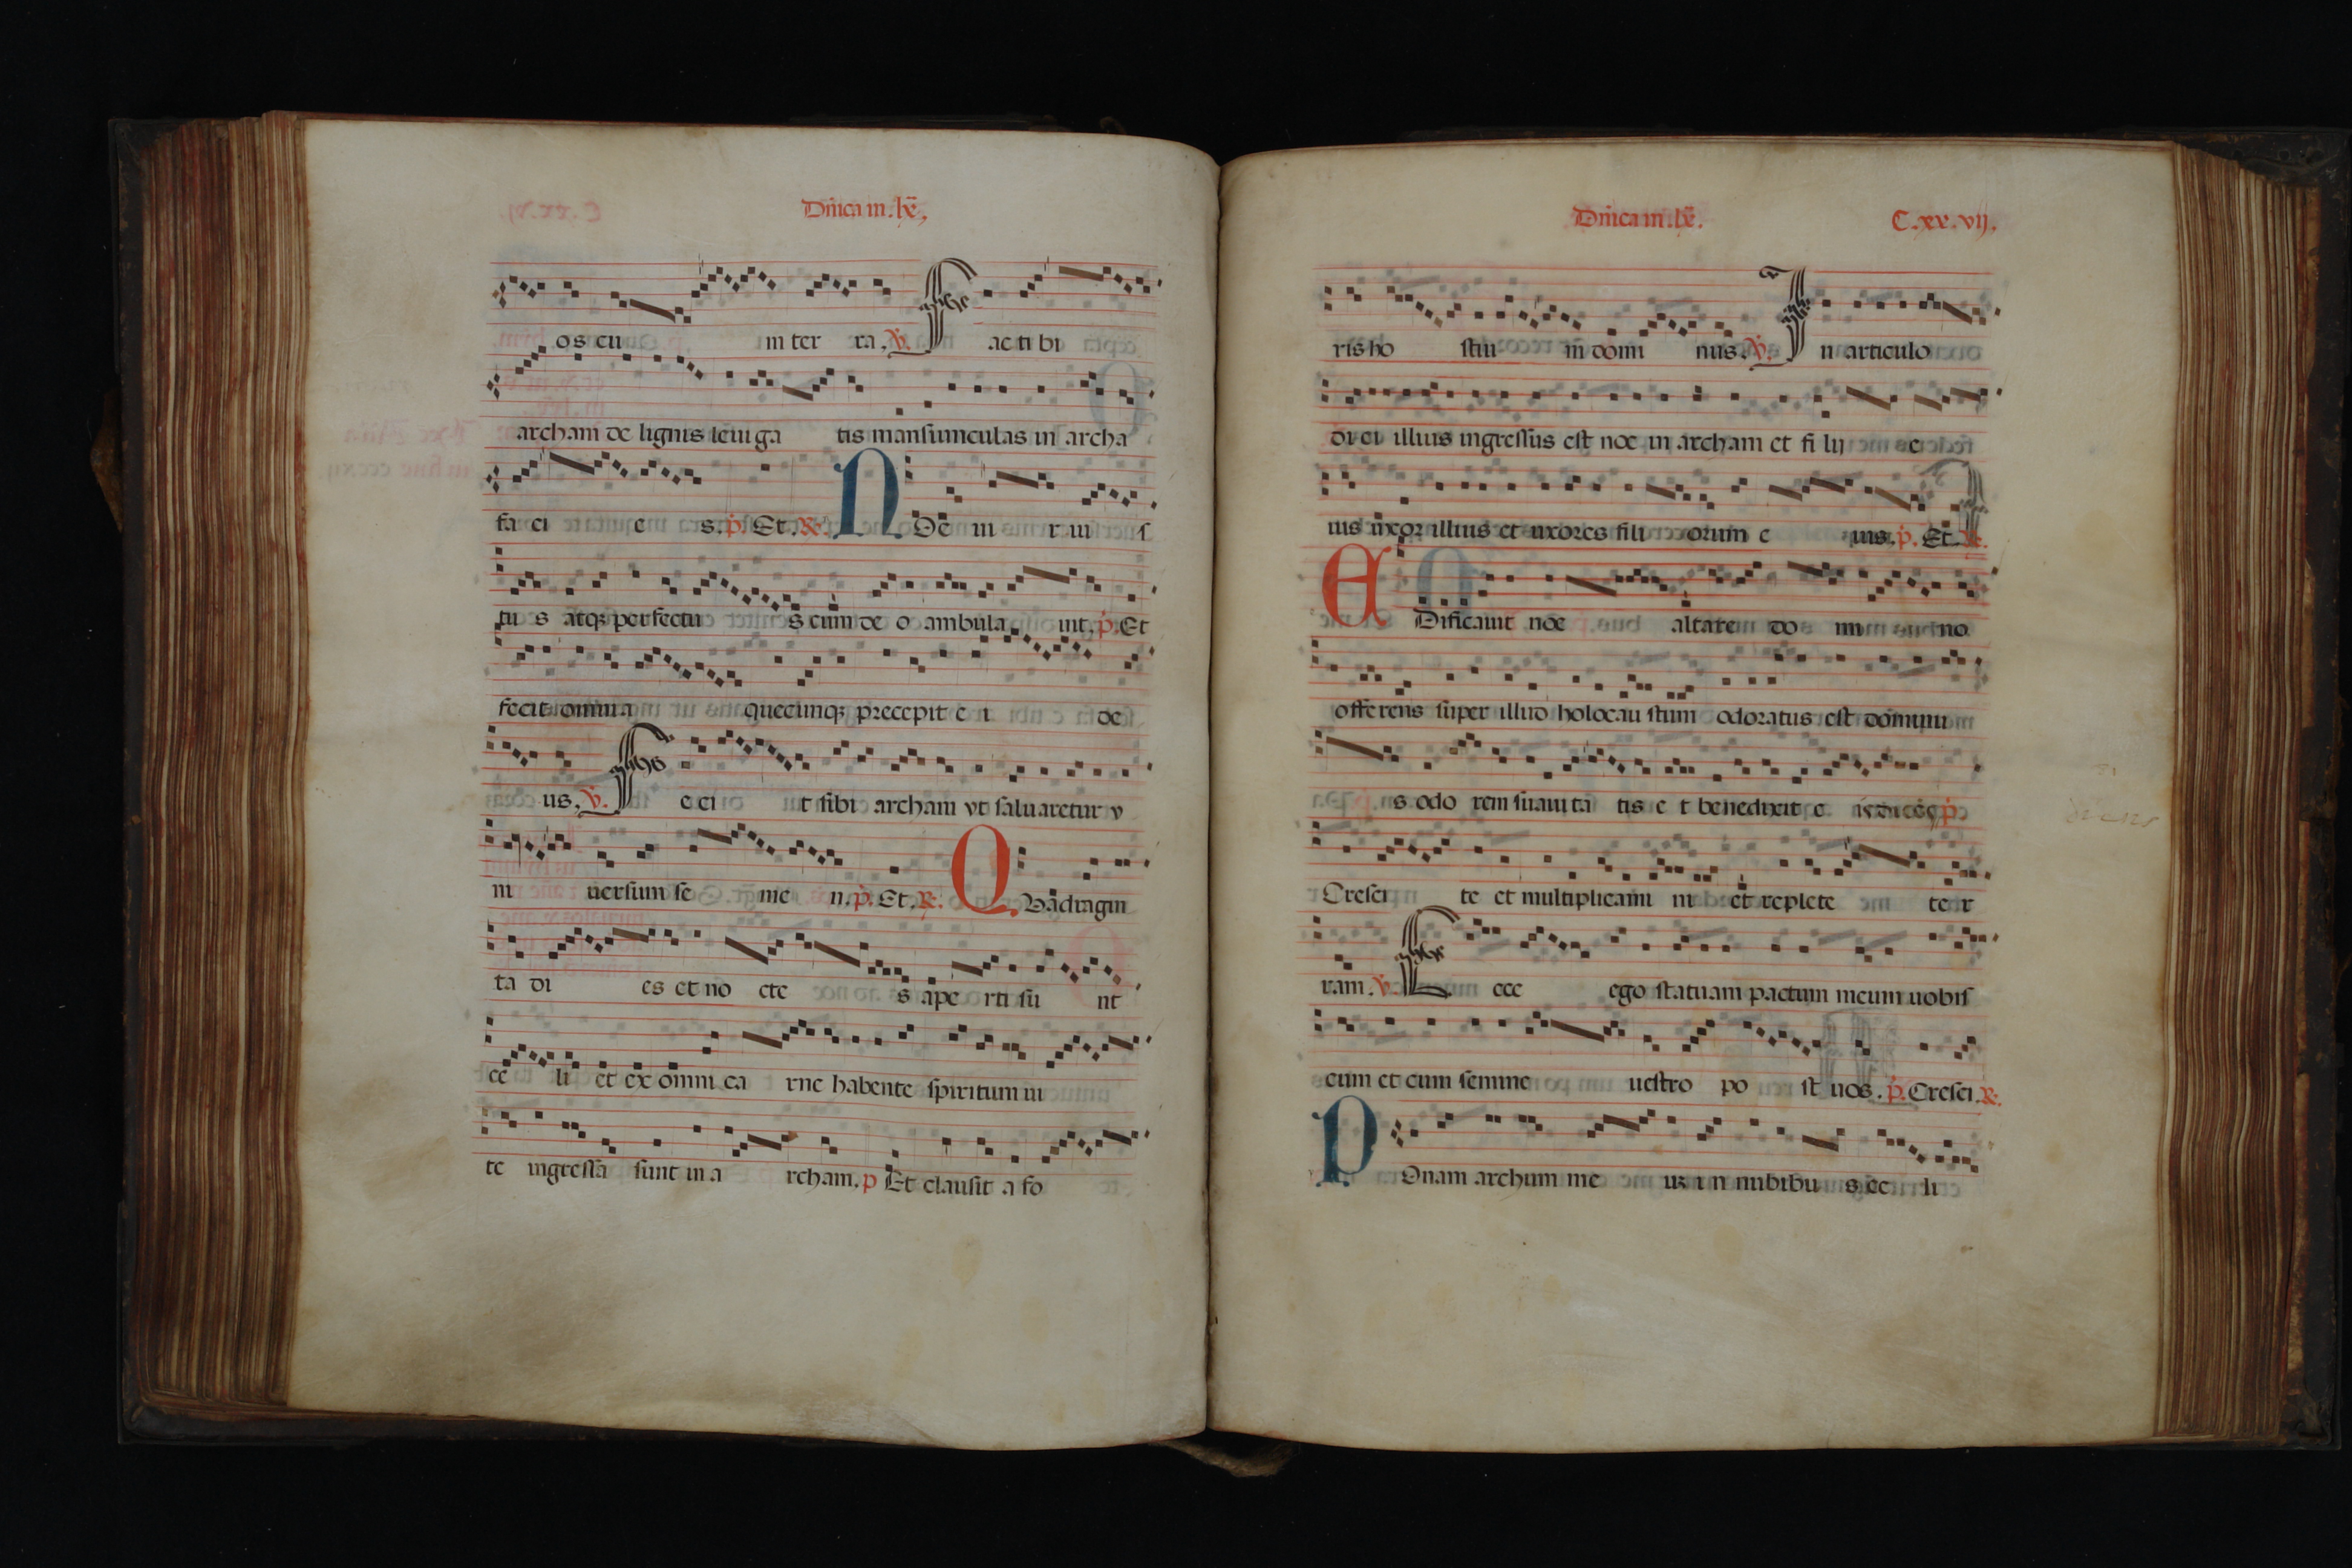 Dñica in .lx̄.
os cu in ter ra. v̇. F ac ti bi
archam de lignis leui ga tis mansiunculas in archa
fa ci e s. ṗ. Et. ℟. N Oe ui r iu s
tu s atqꝫ perfectu s cum de o ambula uit. ṗ. Et
fecit omnia quecunqꝫ precepit e i de
us. v̇. F e ci t sibi archam vt saluaretur v
ni uersum se me n. ṗ. Et. ℟. Q Vadragin
ta di es et no cte s ape rti su nt
ce li et ex omni ca rne habente spiritum ui
te ingressa sunt in a rcham. p Et clausit a fo
Dñica in .lx̄. C.xx.vij.
ris ho stiu m domi nus. v̇. I n articulo
di ei illius ingressus est noe in archam et fi lij e
ius uxor illius et uxores fili orum e ius. ṗ. Et. ℟.
E Dificauit noe altare do mi no
offe rens super illud holocau stum odoratus est dominu
s odo rem suaui ta tis e t benedixit e i dicēs ṗ
Cresci te et multiplicami ni et replete te r
ram. v̇. E cce ego statuam pactum meum uobis
cum et cum semine uestro po st uos. ṗ. Cresci. ℟.
P Onam archum me uꝫ i n nubibu s ce li